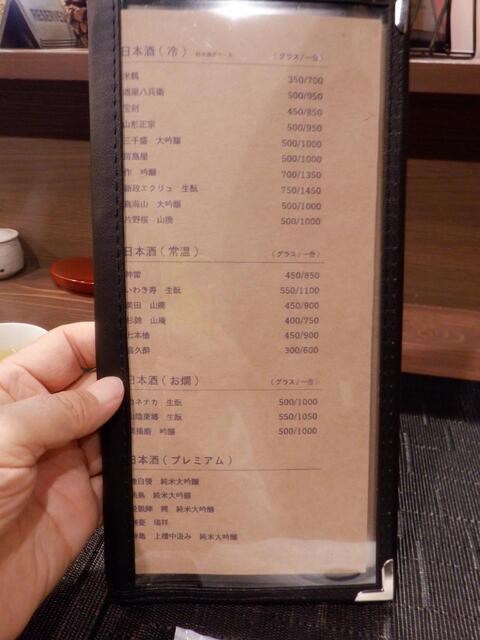 RESERVED
日本酒（冷） （グラス/一合）
米鶴 350/700
酒屋八兵衛 500/950
宝剣 450/850
山形正宗 500/950
三千盛 大吟醸 500/1000
500/1000
作 吟醸 700/1350
新政エクリュ 生酛 750/1450
鳥海山 大吟醸 500/1000
片野桜 山廃 500/1000
日本酒（常温） （グラス/一合）
神雷 450/850
いわき寿 生酛 550/1100
山廃 450/900
杉錦 山廃 400/750
七本槍 450/900
喜久酔 300/600
日本酒（お燗） （グラス/一合）
カネナカ 生酛 500/1000
山陰東郷 生酛 550/1050
播磨 吟醸 500/1000
日本酒（プレミアム）
自慢 純米大吟醸
純米大吟醸
悦凱陣 興 純米大吟醸
瑞祥
亀 上槽中汲み 純米大吟醸